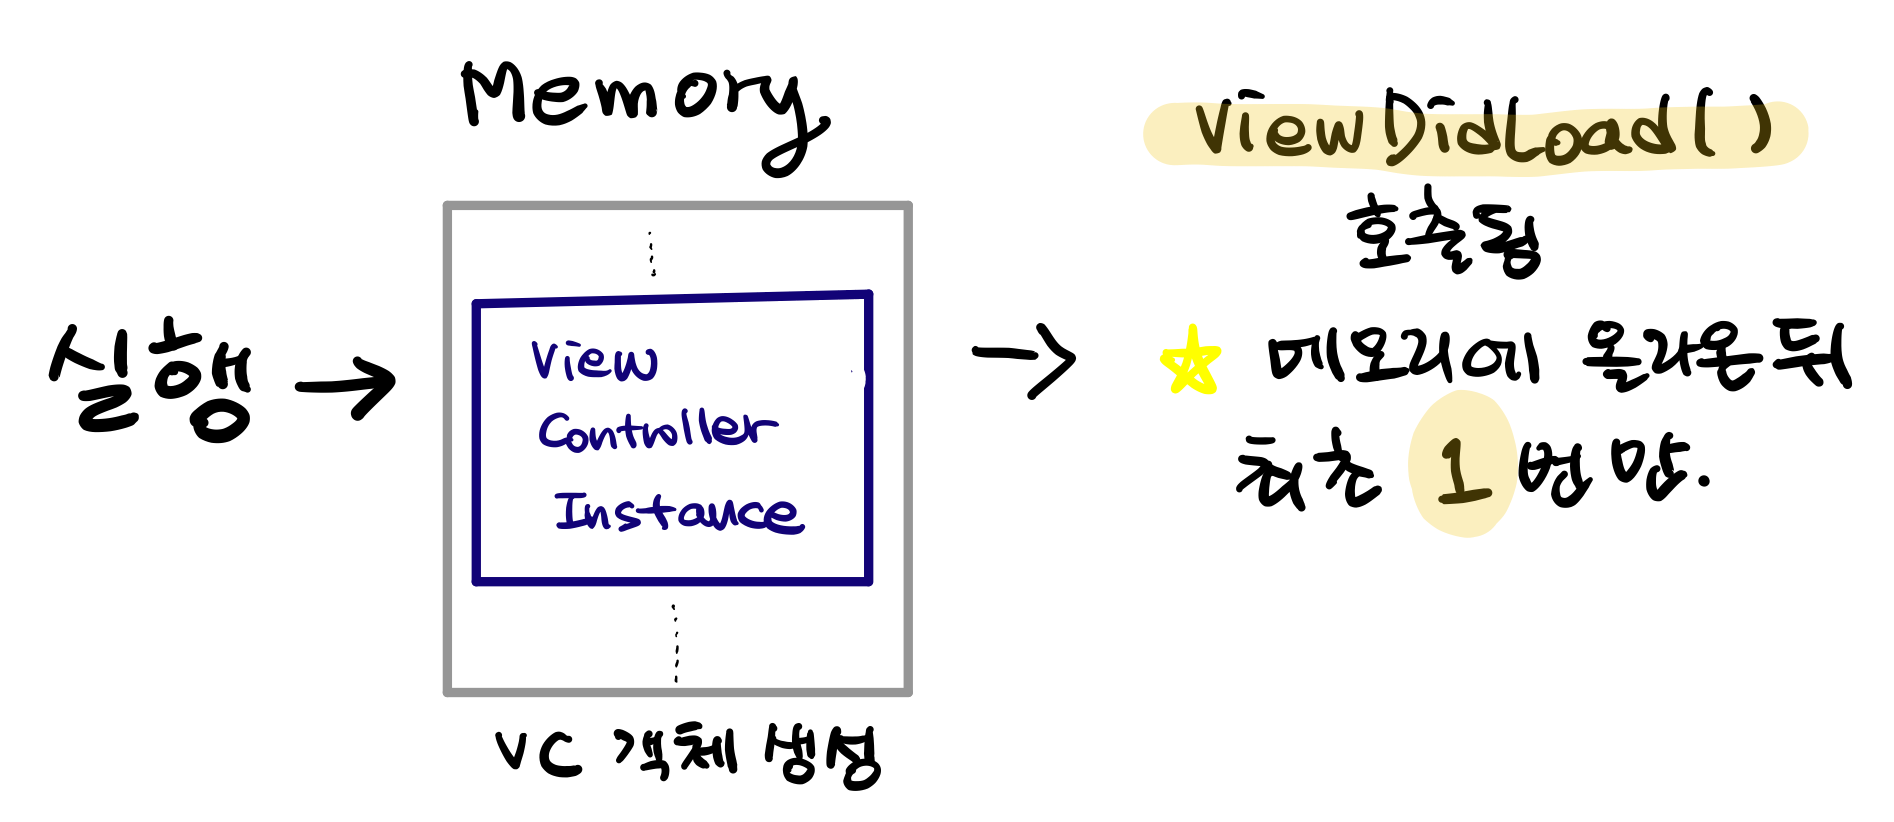 실행 →
Memory
View
Controller
Instance
VC 객체 생성
→
ViewDidLoad()
호출됨
☆ 메모리에 올라온 뒤
최초 1번만.